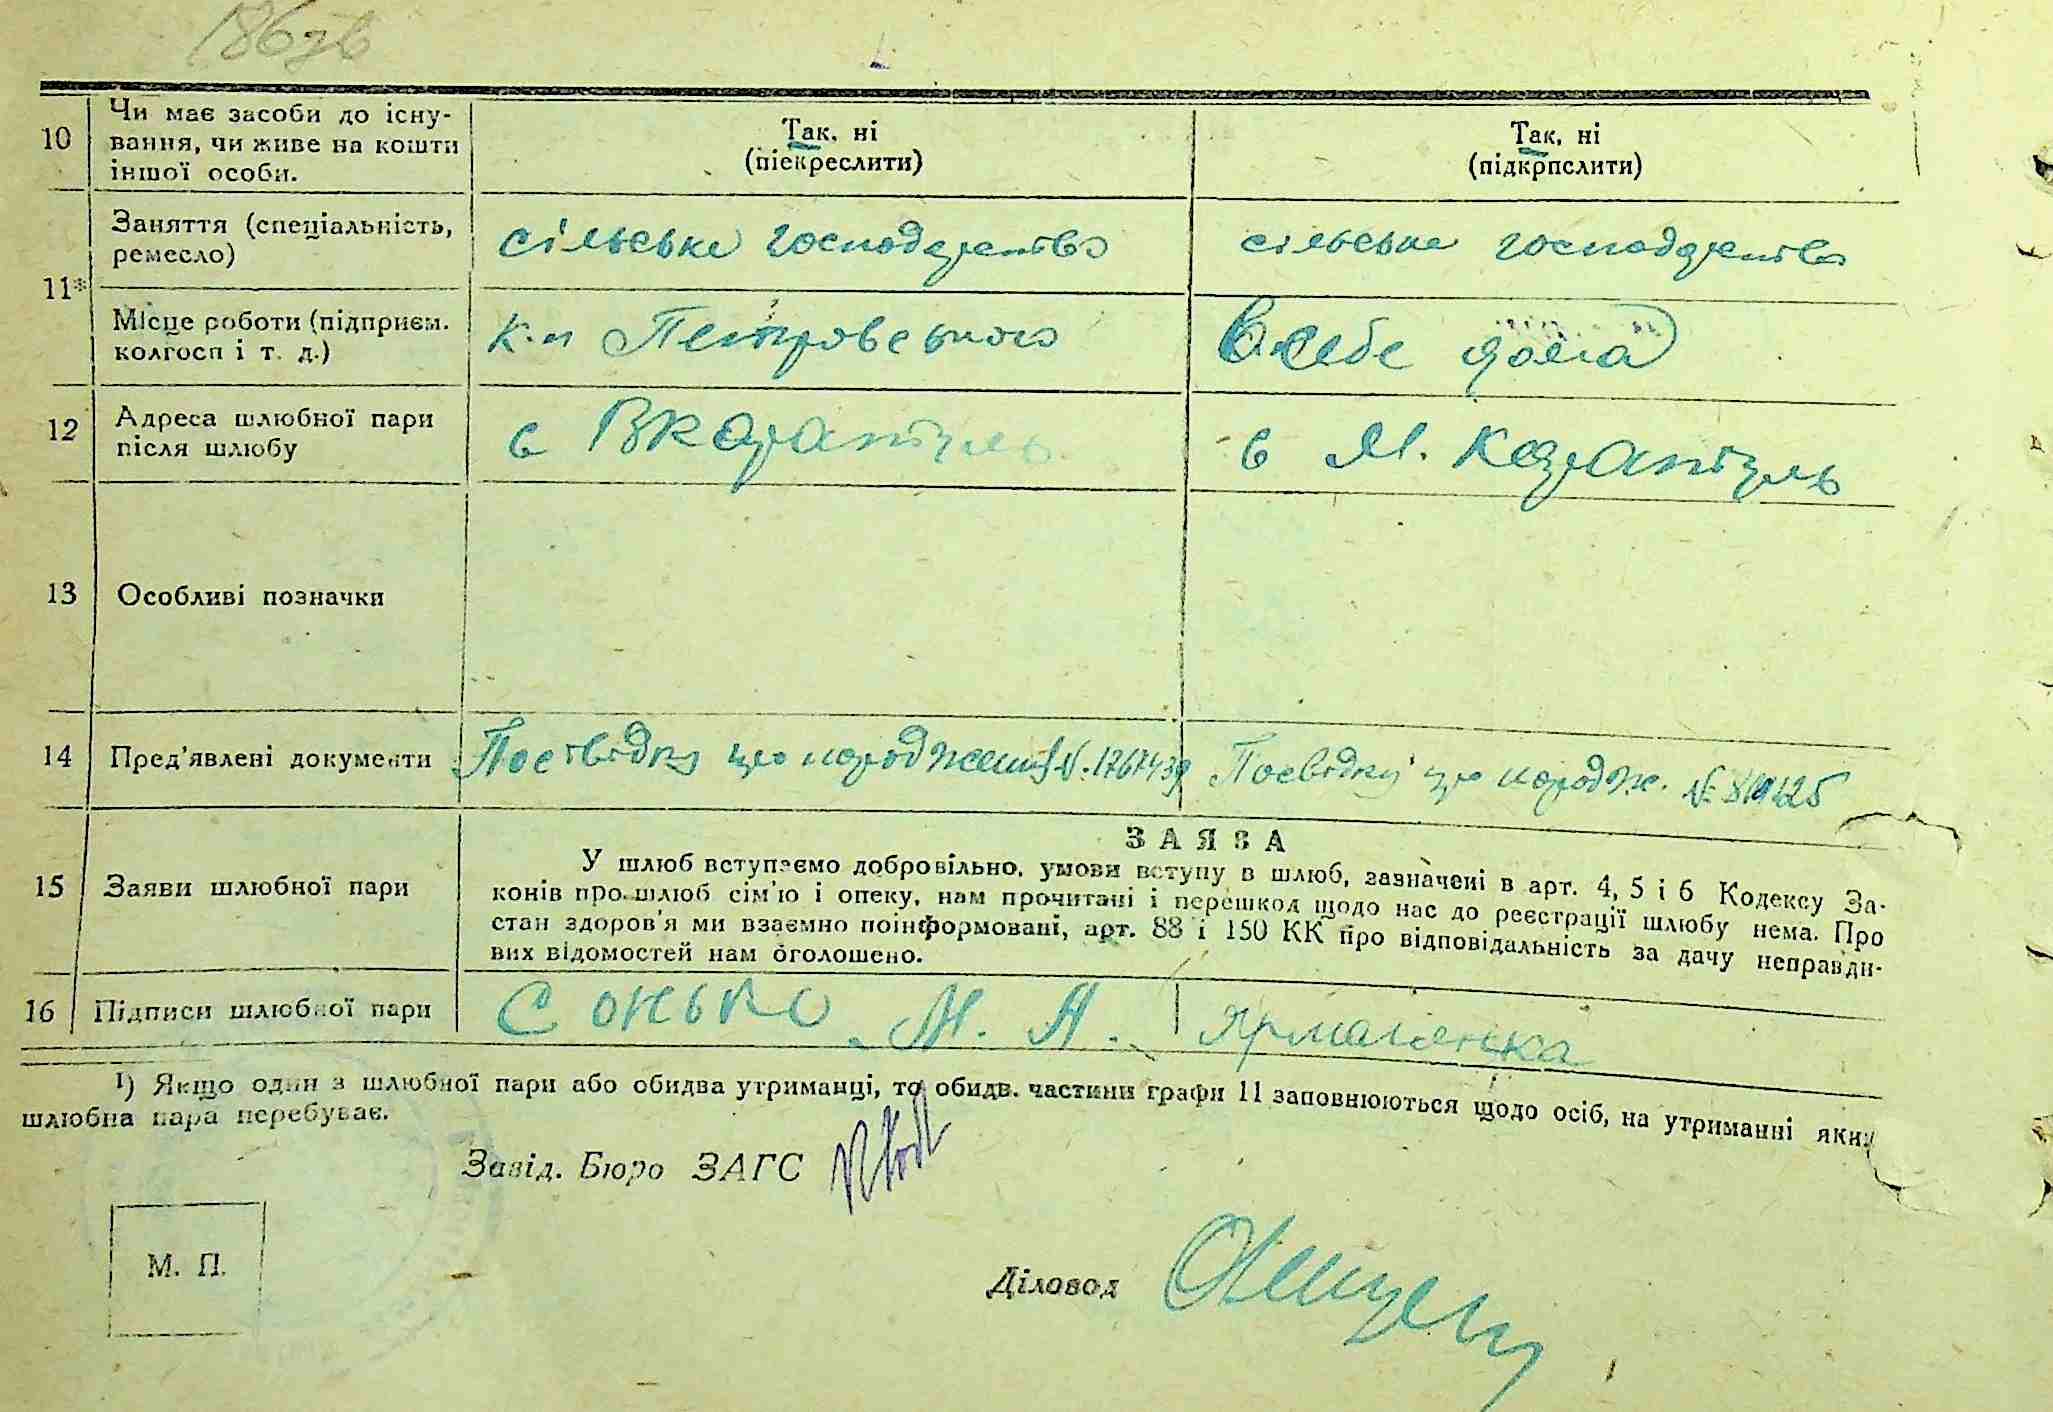 186зв
10
Чи має засоби до існу-
вання, чи живе на кошти
іншої особи.
Так, ні
(піекреслити)
Так, ні
(підкрпслити)
11*
Заняття (спеціальність,
ремесло)
сільське господарство
сільське господарство
Місце роботи (підприєм.
колгосп і т. д.)
к-п Петровського
В себе дома
12
Адреса шлюбної пари
після шлюбу
в В Каратуль
в М. Каратуль
13
Особливі позначки
14
Пред'явлені документи
Посвідку про народження №. 1767439
Посвідку про народж. №
15
Заяви шлюбної пари
ЗАЯВА
У шлюб вступаємо добровільно, умови вступу в шлюб, зазначені в арт. 4, 5 і 6 Кодексу За-
конів про шлюб сім'ю і опеку, нам прочитані і перешкод щодо нас до реєстрації шлюбу нема. Про
стан здоров'я ми взаємно поінформовані, арт. 88 і 150 КК про відповідальність за дачу неправди-
вих відомостей нам оголошено.
16
Підписи шлюбної пари
Сонько М. А.
Ярмолянка
1) Якщо один з шлюбної пари або обидва утриманці, то обидв. частини графи 11 заповнюються щодо осіб, на утриманні яких
шлюбна пара перебуває.
Завід. Бюро ЗАГС
М. П.
Діловод